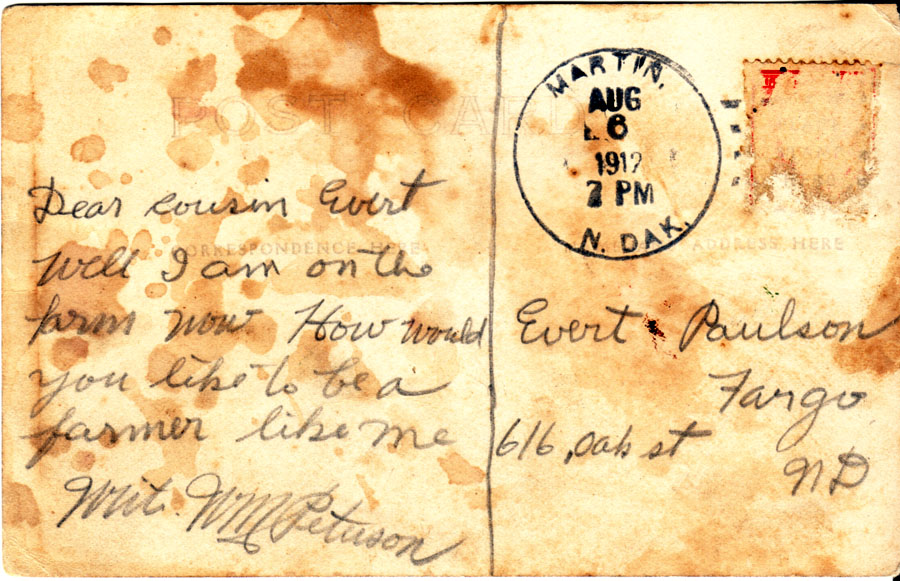 POST CARD
MARTIN,
AUG
6
1912
7 PM
N. DAK.
CORRESPONDENCE HERE
ADDRESS HERE
Dear cousin Evert
Well I am on the
farm now How would
you like to be a
farmer like me
Writ. WM Peterson
Evert Paulson
Fargo
616, Oak st
ND